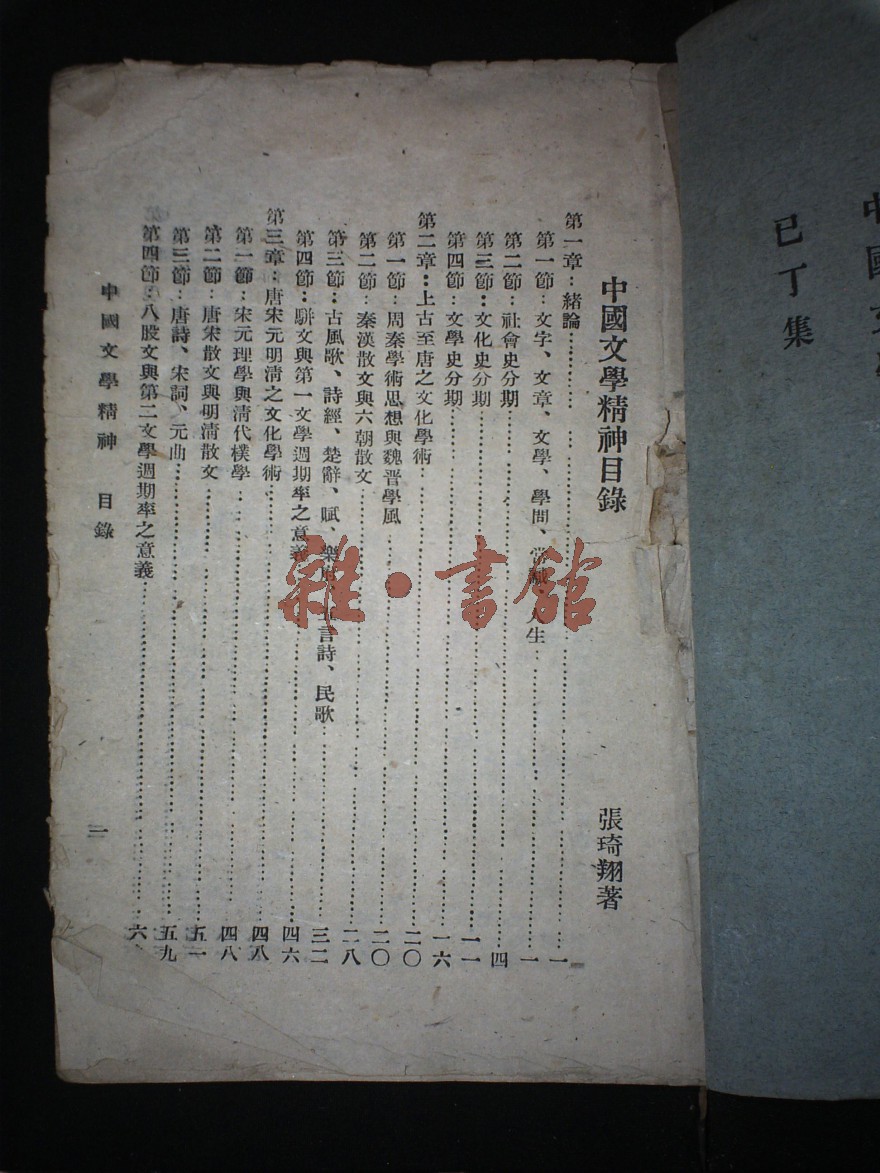 中國文
己丁集
中國文學精神目錄
張琦翔著
第一章：緒論……一
第一節：文字、文章、文學、學問、常識、人生……一
第二節：社會史分期……四
第三節：文化史分期……一一
第四節：文學史分期……一六
第二章：上古至唐之文化學術……二〇
第一節：周秦學術思想與魏晉學風……二〇
第二節：秦漢散文與六朝散文……二八
第三節：古風歌、詩經、楚辭、賦、樂 言詩、民歌……三二
第四節：駢文與第一文學週期率之意義……四六
第三章：唐宋元明清之文化學術……四八
第一節：宋元理學與清代樸學……四八
第二節：唐宋散文與明清散文……五一
第三節：唐詩、宋詞、元曲……五九
第四節：八股文與第二文學週期率之意義……六
中國文學精神 目錄
一
雜·書館